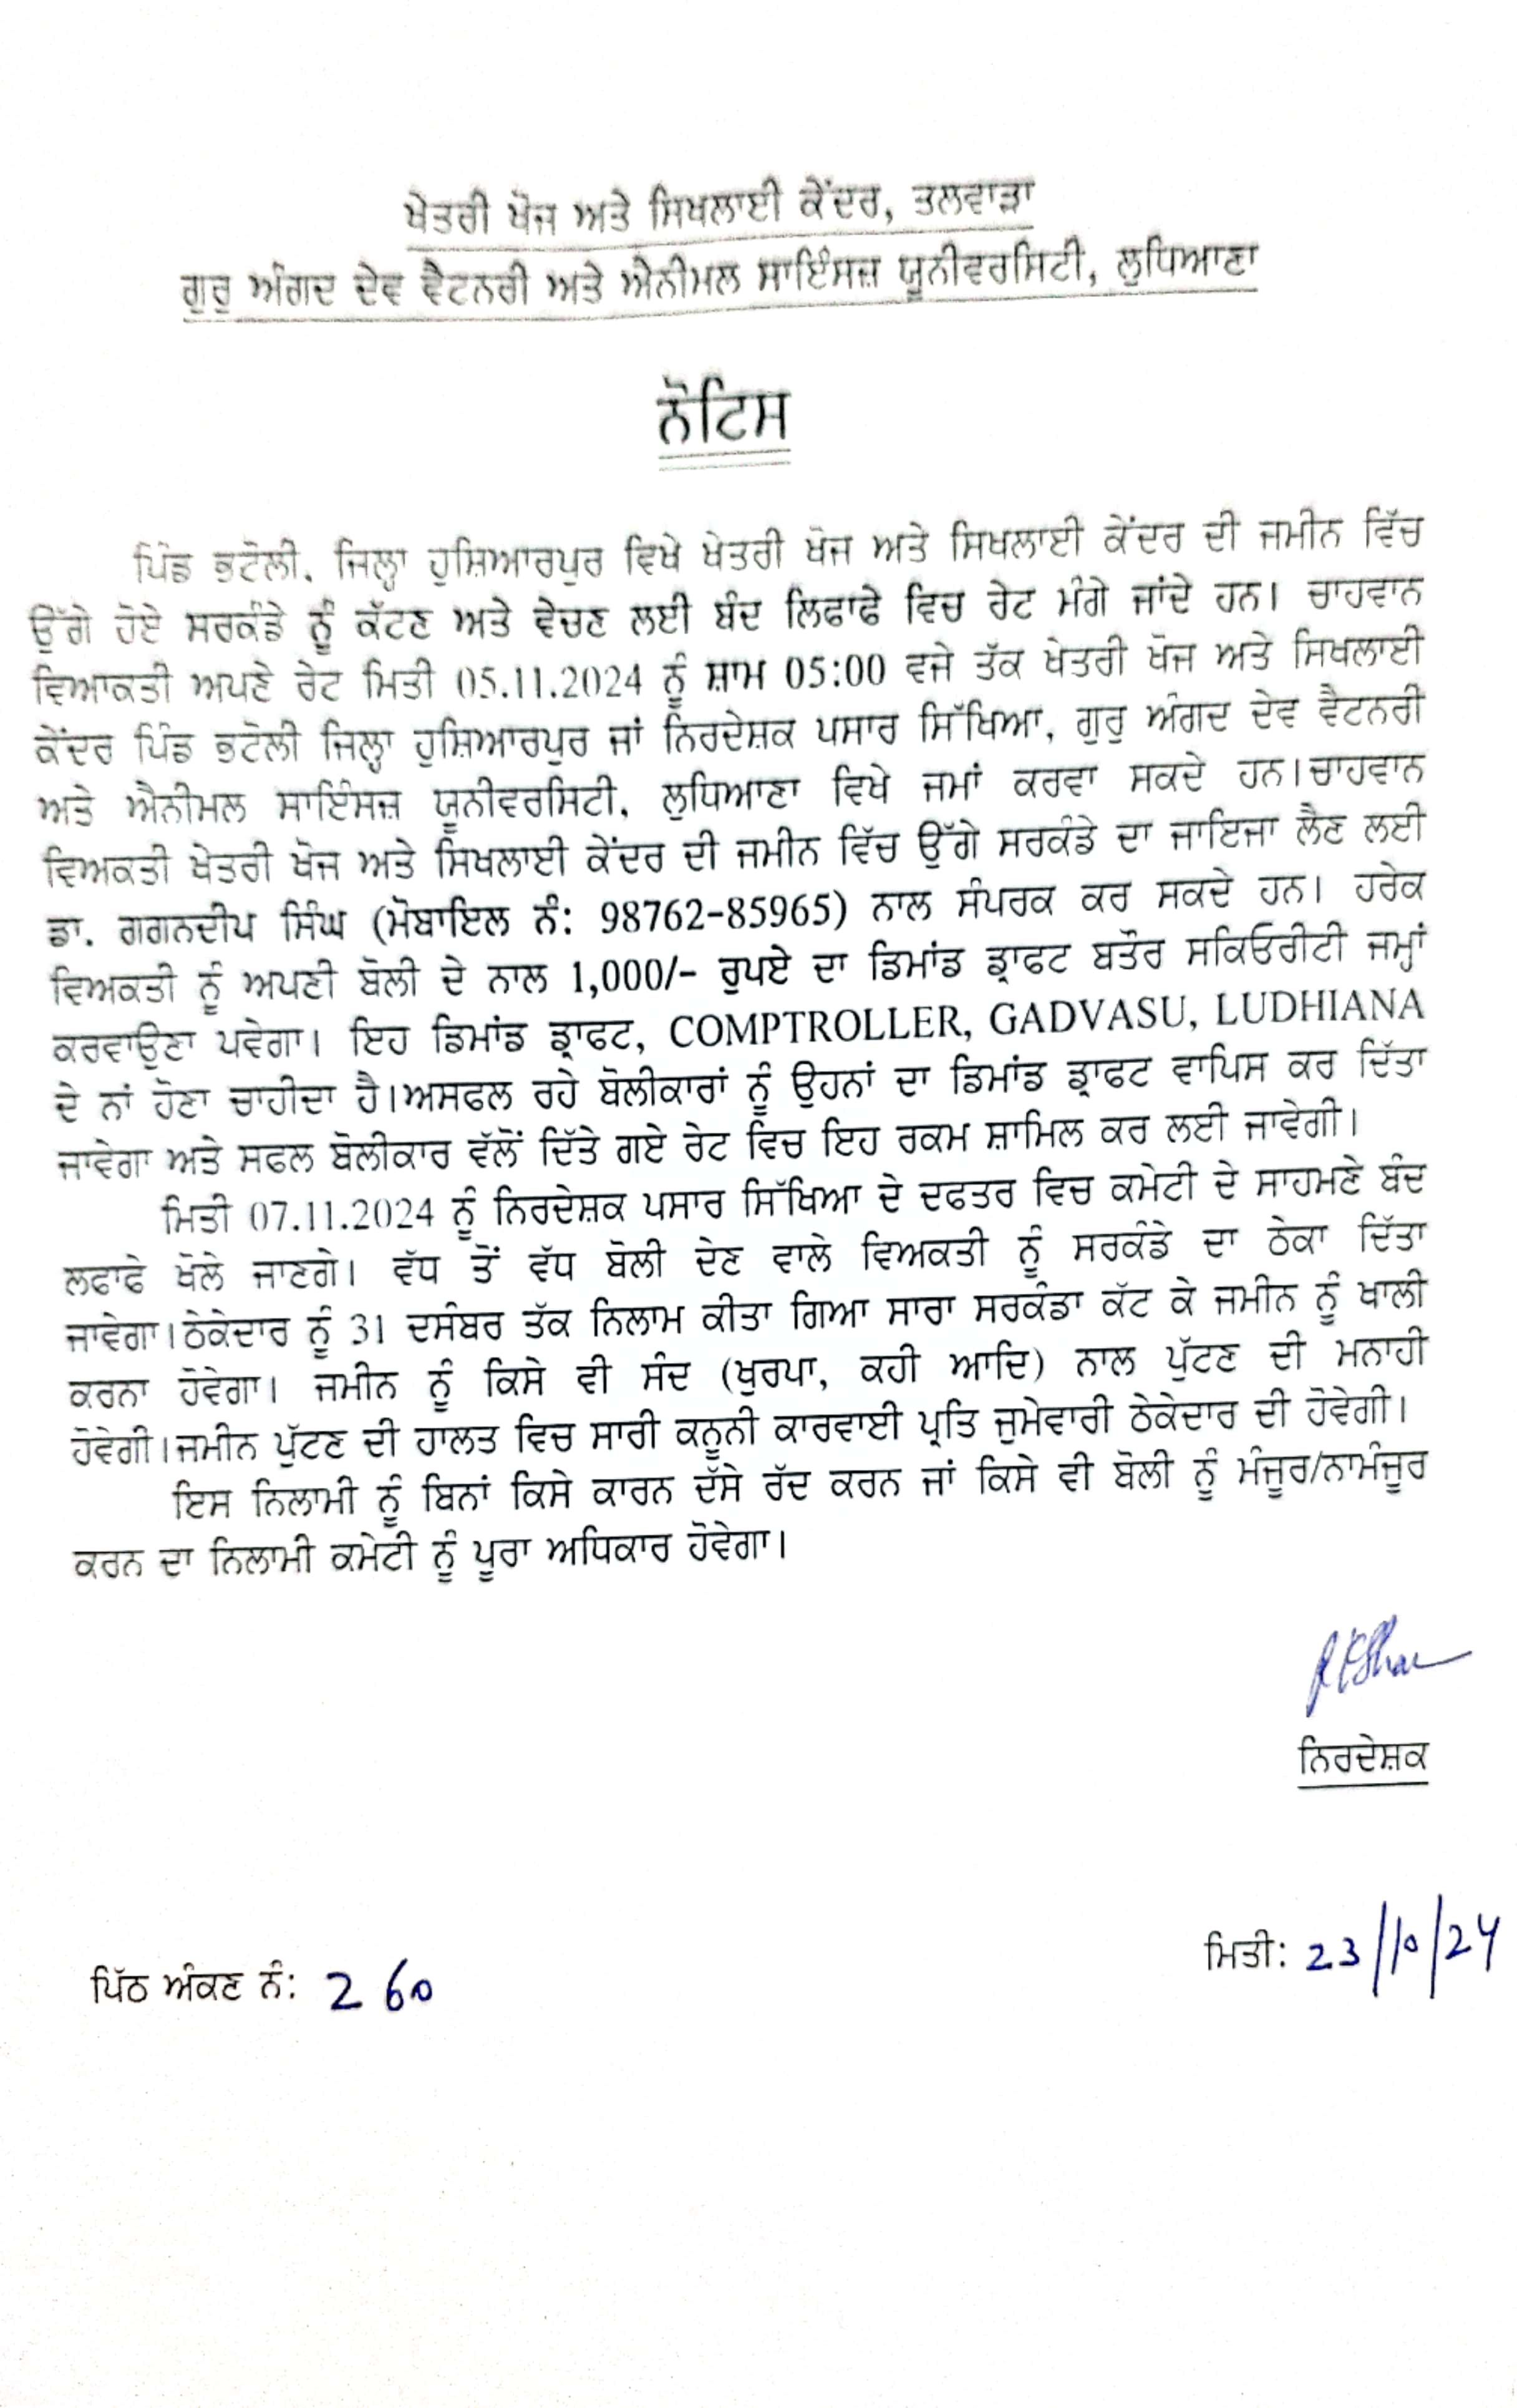 ਖੇਤਰੀ ਖੋਜ ਅਤੇ ਸਿਖਲਾਈ ਕੇਂਦਰ, ਤਲਵਾੜਾ
ਗੁਰੂ ਅੰਗਦ ਦੇਵ ਵੈਟਨਰੀ ਅਤੇ ਐਨੀਮਲ ਸਾਇੰਸਜ਼ ਯੂਨੀਵਰਸਿਟੀ, ਲੁਧਿਆਣਾ
ਨੋਟਿਸ
ਪਿੰਡ ਭਟੋਲੀ, ਜਿਲ੍ਹਾ ਹੁਸ਼ਿਆਰਪੁਰ ਵਿਖੇ ਖੇਤਰੀ ਖੋਜ ਅਤੇ ਸਿਖਲਾਈ ਕੇਂਦਰ ਦੀ ਜਮੀਨ ਵਿੱਚ
ਉੱਗੇ ਹੋਏ ਸਰਕੰਡੇ ਨੂੰ ਕੱਟਣ ਅਤੇ ਵੇਚਣ ਲਈ ਬੰਦ ਲਿਫਾਫੇ ਵਿਚ ਰੇਟ ਮੰਗੇ ਜਾਂਦੇ ਹਨ। ਚਾਹਵਾਨ
ਵਿਆਕਤੀ ਅਪਣੇ ਰੇਟ ਮਿਤੀ 05.11.2024 ਨੂੰ ਸ਼ਾਮ 05:00 ਵਜੇ ਤੱਕ ਖੇਤਰੀ ਖੋਜ ਅਤੇ ਸਿਖਲਾਈ
ਕੇਂਦਰ ਪਿੰਡ ਭਟੋਲੀ ਜਿਲ੍ਹਾ ਹੁਸ਼ਿਆਰਪੁਰ ਜਾਂ ਨਿਰਦੇਸ਼ਕ ਪਸਾਰ ਸਿੱਖਿਆ, ਗੁਰੁ ਅੰਗਦ ਦੇਵ ਵੈਟਨਰੀ
ਅਤੇ ਐਨੀਮਲ ਸਾਇੰਸਜ਼ ਯੂਨੀਵਰਸਿਟੀ, ਲੁਧਿਆਣਾ ਵਿਖੇ ਜਮਾਂ ਕਰਵਾ ਸਕਦੇ ਹਨ।ਚਾਹਵਾਨ
ਵਿਅਕਤੀ ਖੇਤਰੀ ਖੋਜ ਅਤੇ ਸਿਖਲਾਈ ਕੇਂਦਰ ਦੀ ਜਮੀਨ ਵਿੱਚ ਉੱਗੇ ਸਰਕੰਡੇ ਦਾ ਜਾਇਜਾ ਲੈਣ ਲਈ
ਡਾ. ਗਗਨਦੀਪ ਸਿੰਘ (ਮੋਬਾਇਲ ਨੰ: 98762-85965) ਨਾਲ ਸੰਪਰਕ ਕਰ ਸਕਦੇ ਹਨ। ਹਰੇਕ
ਵਿਅਕਤੀ ਨੂੰ ਅਪਣੀ ਬੋਲੀ ਦੇ ਨਾਲ 1,000/- ਰੁਪਏ ਦਾ ਡਿਮਾਂਡ ਡ੍ਰਾਫਟ ਬਤੌਰ ਸਕਿਓਰੀਟੀ ਜਮ੍ਹਾਂ
ਕਰਵਾਉਣਾ ਪਵੇਗਾ। ਇਹ ਡਿਮਾਂਡ ਡ੍ਰਾਫਟ, COMPTROLLER, GADVASU, LUDHIANA
ਦੇ ਨਾਂ ਹੋਣਾ ਚਾਹੀਦਾ ਹੈ।ਅਸਫਲ ਰਹੇ ਬੋਲੀਕਾਰਾਂ ਨੂੰ ਉਹਨਾਂ ਦਾ ਡਿਮਾਂਡ ਡ੍ਰਾਫਟ ਵਾਪਿਸ ਕਰ ਦਿੱਤਾ
ਜਾਵੇਗਾ ਅਤੇ ਸਫਲ ਬੋਲੀਕਾਰ ਵੱਲੋਂ ਦਿੱਤੇ ਗਏ ਰੇਟ ਵਿਚ ਇਹ ਰਕਮ ਸ਼ਾਮਿਲ ਕਰ ਲਈ ਜਾਵੇਗੀ।
ਮਿਤੀ 07.11.2024 ਨੂੰ ਨਿਰਦੇਸ਼ਕ ਪਸਾਰ ਸਿੱਖਿਆ ਦੇ ਦਫਤਰ ਵਿਚ ਕਮੇਟੀ ਦੇ ਸਾਹਮਣੇ ਬੰਦ
ਲਫਾਫੇ ਖੋਲੇ ਜਾਣਗੇ। ਵੱਧ ਤੋਂ ਵੱਧ ਬੋਲੀ ਦੇਣ ਵਾਲੇ ਵਿਅਕਤੀ ਨੂੰ ਸਰਕੰਡੇ ਦਾ ਠੇਕਾ ਦਿੱਤਾ
ਜਾਵੇਗਾ।ਠੇਕੇਦਾਰ ਨੂੰ 31 ਦਸੰਬਰ ਤੱਕ ਨਿਲਾਮ ਕੀਤਾ ਗਿਆ ਸਾਰਾ ਸਰਕੰਡਾ ਕੱਟ ਕੇ ਜਮੀਨ ਨੂੰ ਖਾਲੀ
ਕਰਨਾ ਹੋਵੇਗਾ। ਜਮੀਨ ਨੂੰ ਕਿਸੇ ਵੀ ਸੰਦ (ਖੁਰਪਾ, ਕਹੀ ਆਦਿ) ਨਾਲ ਪੁੱਟਣ ਦੀ ਮਨਾਹੀ
ਹੋਵੇਗੀ।ਜਮੀਨ ਪੁੱਟਣ ਦੀ ਹਾਲਤ ਵਿਚ ਸਾਰੀ ਕਨੂਨੀ ਕਾਰਵਾਈ ਪ੍ਰਤਿ ਜੁਮੇਵਾਰੀ ਠੇਕੇਦਾਰ ਦੀ ਹੋਵੇਗੀ।
ਇਸ ਨਿਲਾਮੀ ਨੂੰ ਬਿਨਾਂ ਕਿਸੇ ਕਾਰਨ ਦੱਸੇ ਰੱਦ ਕਰਨ ਜਾਂ ਕਿਸੇ ਵੀ ਬੋਲੀ ਨੂੰ ਮੰਜੂਰ/ਨਾਮੰਜੂਰ
ਕਰਨ ਦਾ ਨਿਲਾਮੀ ਕਮੇਟੀ ਨੂੰ ਪੂਰਾ ਅਧਿਕਾਰ ਹੋਵੇਗਾ।
ਨਿਰਦੇਸ਼ਕ
ਮਿਤੀ: 23/10/24
ਪਿੱਠ ਅੰਕਣ ਨੰ: 260